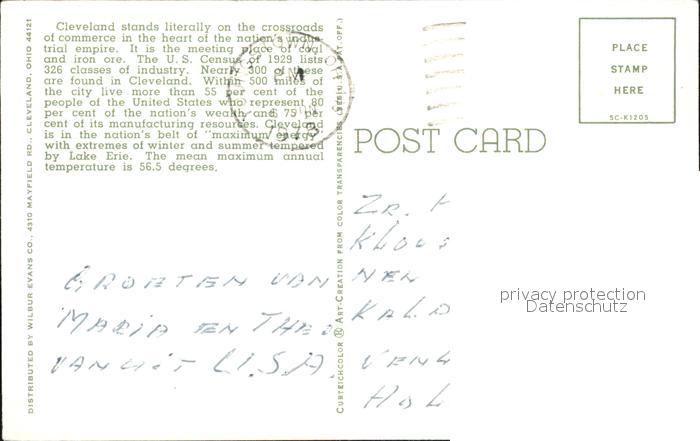 Cleveland stands literally on the crossroads
of commerce in the heart of the nation's indus-
trial empire. It is the meeting place of coal
and iron ore. The U.S. Census of 1929 lists
326 classes of industry. Nearly 300 of these
are found in Cleveland. Within 500 miles of
the city live more than 55 per cent of the
people of the United States who represent 80
per cent of the nation's wealth and 75 per
cent of its manufacturing resources. Cleveland
is in the nation's belt of "maximum energy"
with extremes of winter and summer tempered
by Lake Erie. The mean maximum annual
temperature is 56.5 degrees.
DISTRIBUTED BY WILBUR EVANS CO., 4310 MAYFIELD RD., CLEVELAND, OHIO 44121
CURTEICHCOLOR ® ART-CREATION FROM COLOR TRANSPARENCIES (REG. U.S.A. PAT. OFF.)
PLACE
STAMP
HERE
5C-K1205
POST CARD
GROETEN VAN
MARIA EN THEO
VANUIT U.S.A.
ZR.
NEN
KALD
VENL
HOL
privacy protection
Datenschutz